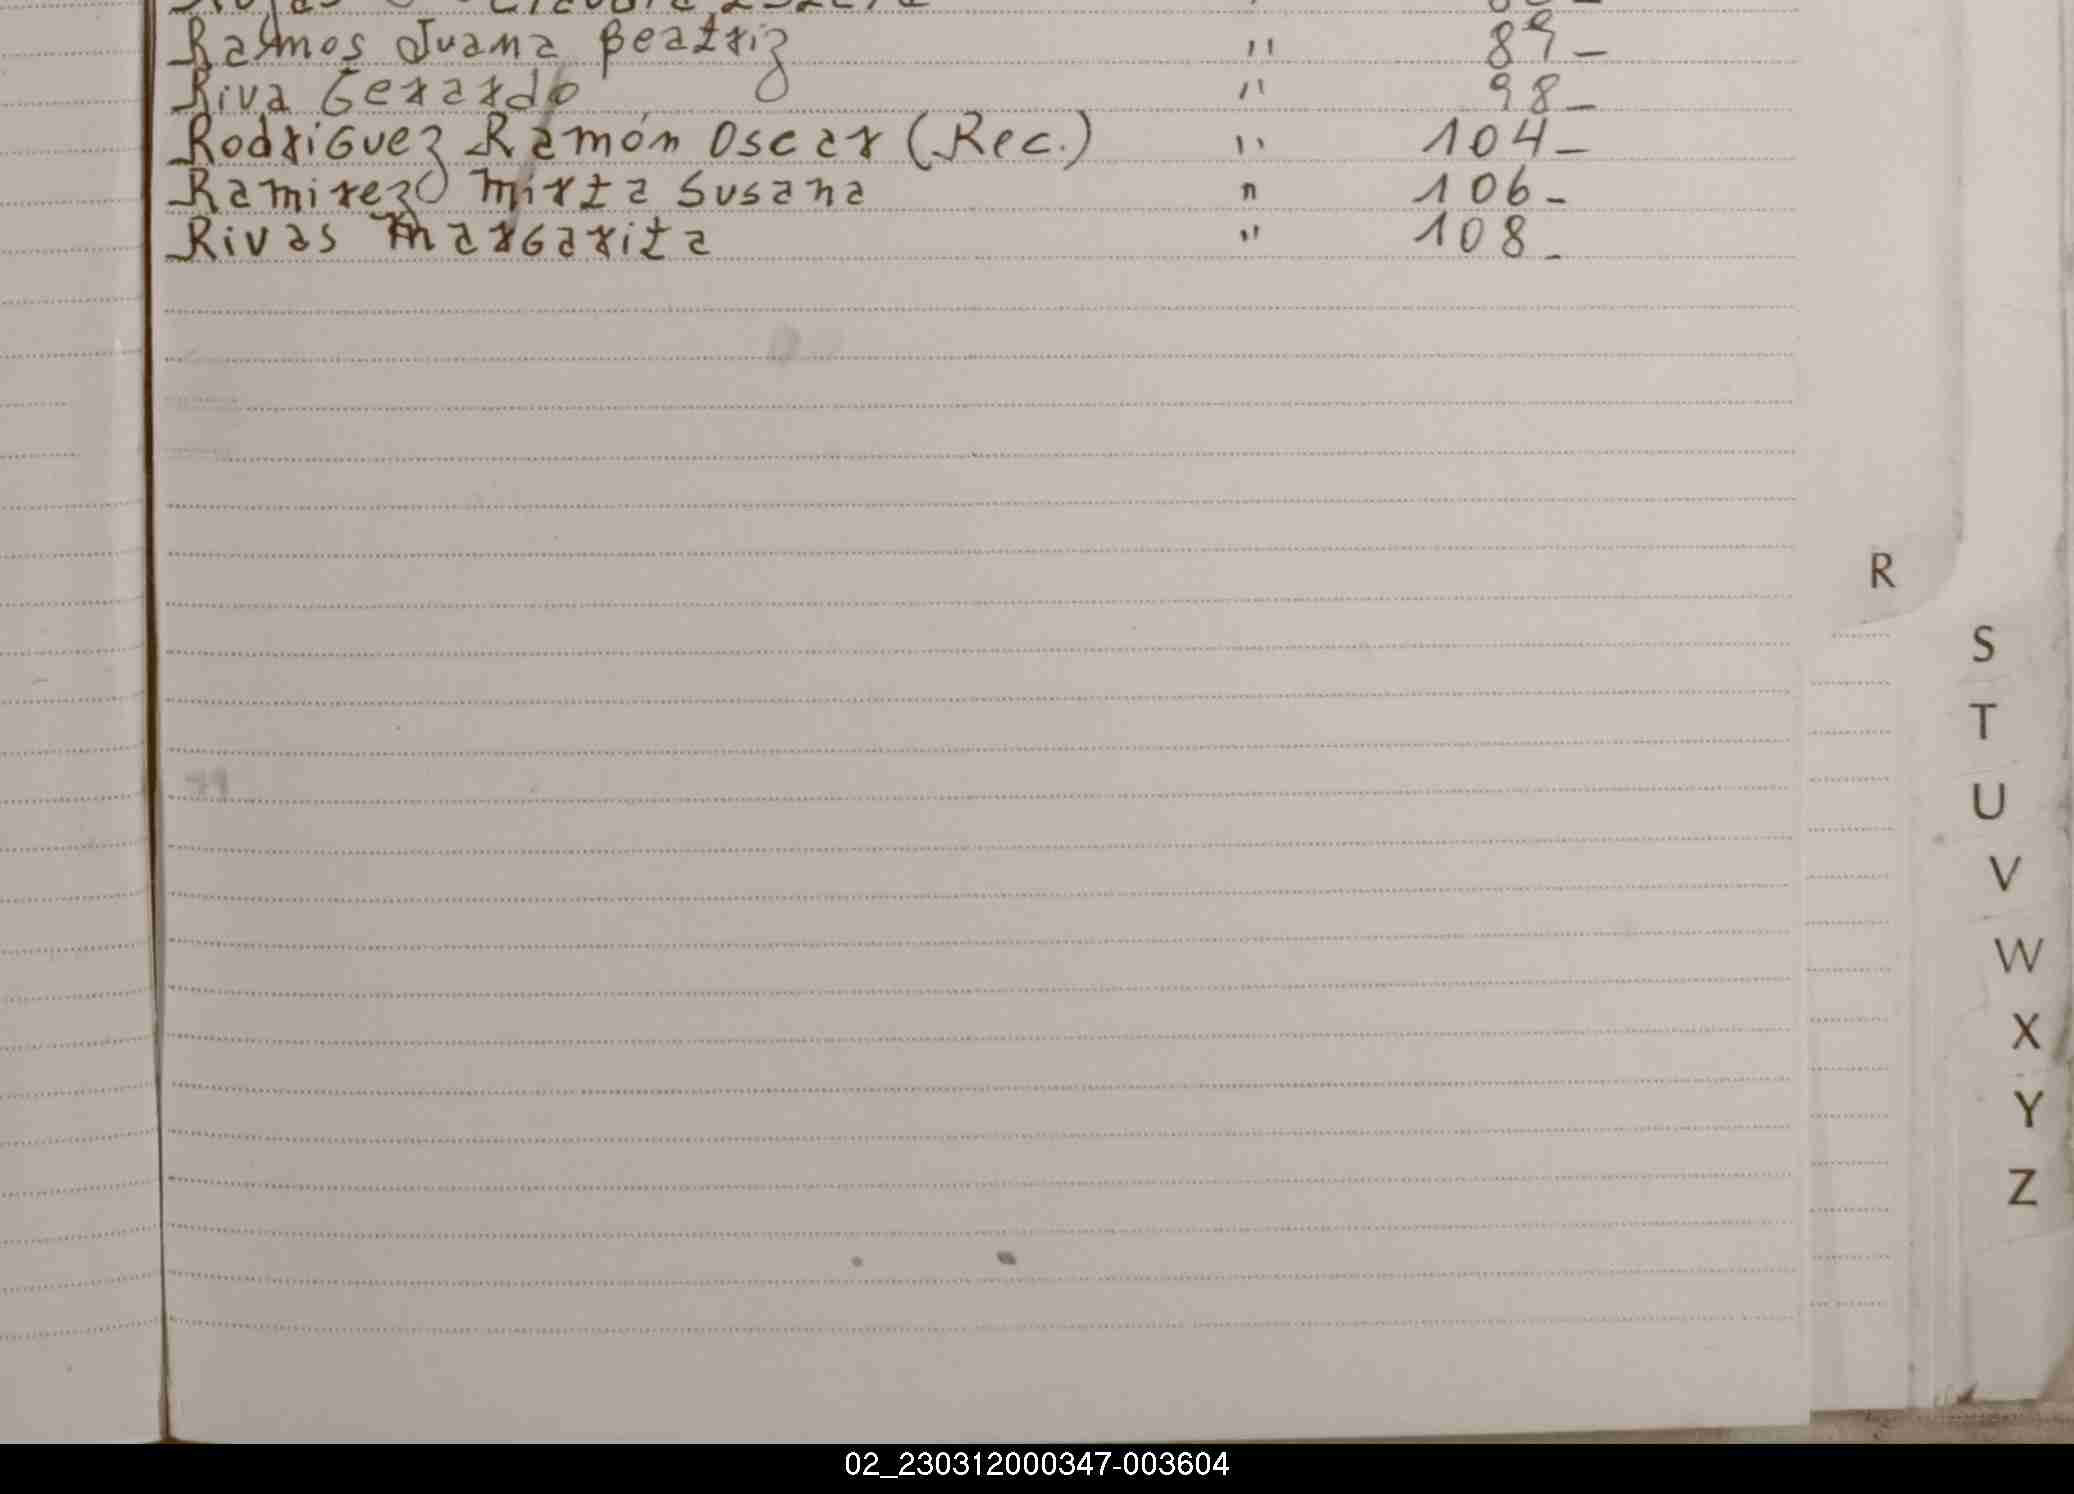 Ramos Juana Beatriz " 89_
Riva Gerardo " 98_
Rodriguez Ramón Oscar (Rec.) " 104_
Ramirez Mirta Susana " 106_
Rivas Margarita " 108_
R
S
T
U
V
W
X
Y
Z
02_230312000347-003604